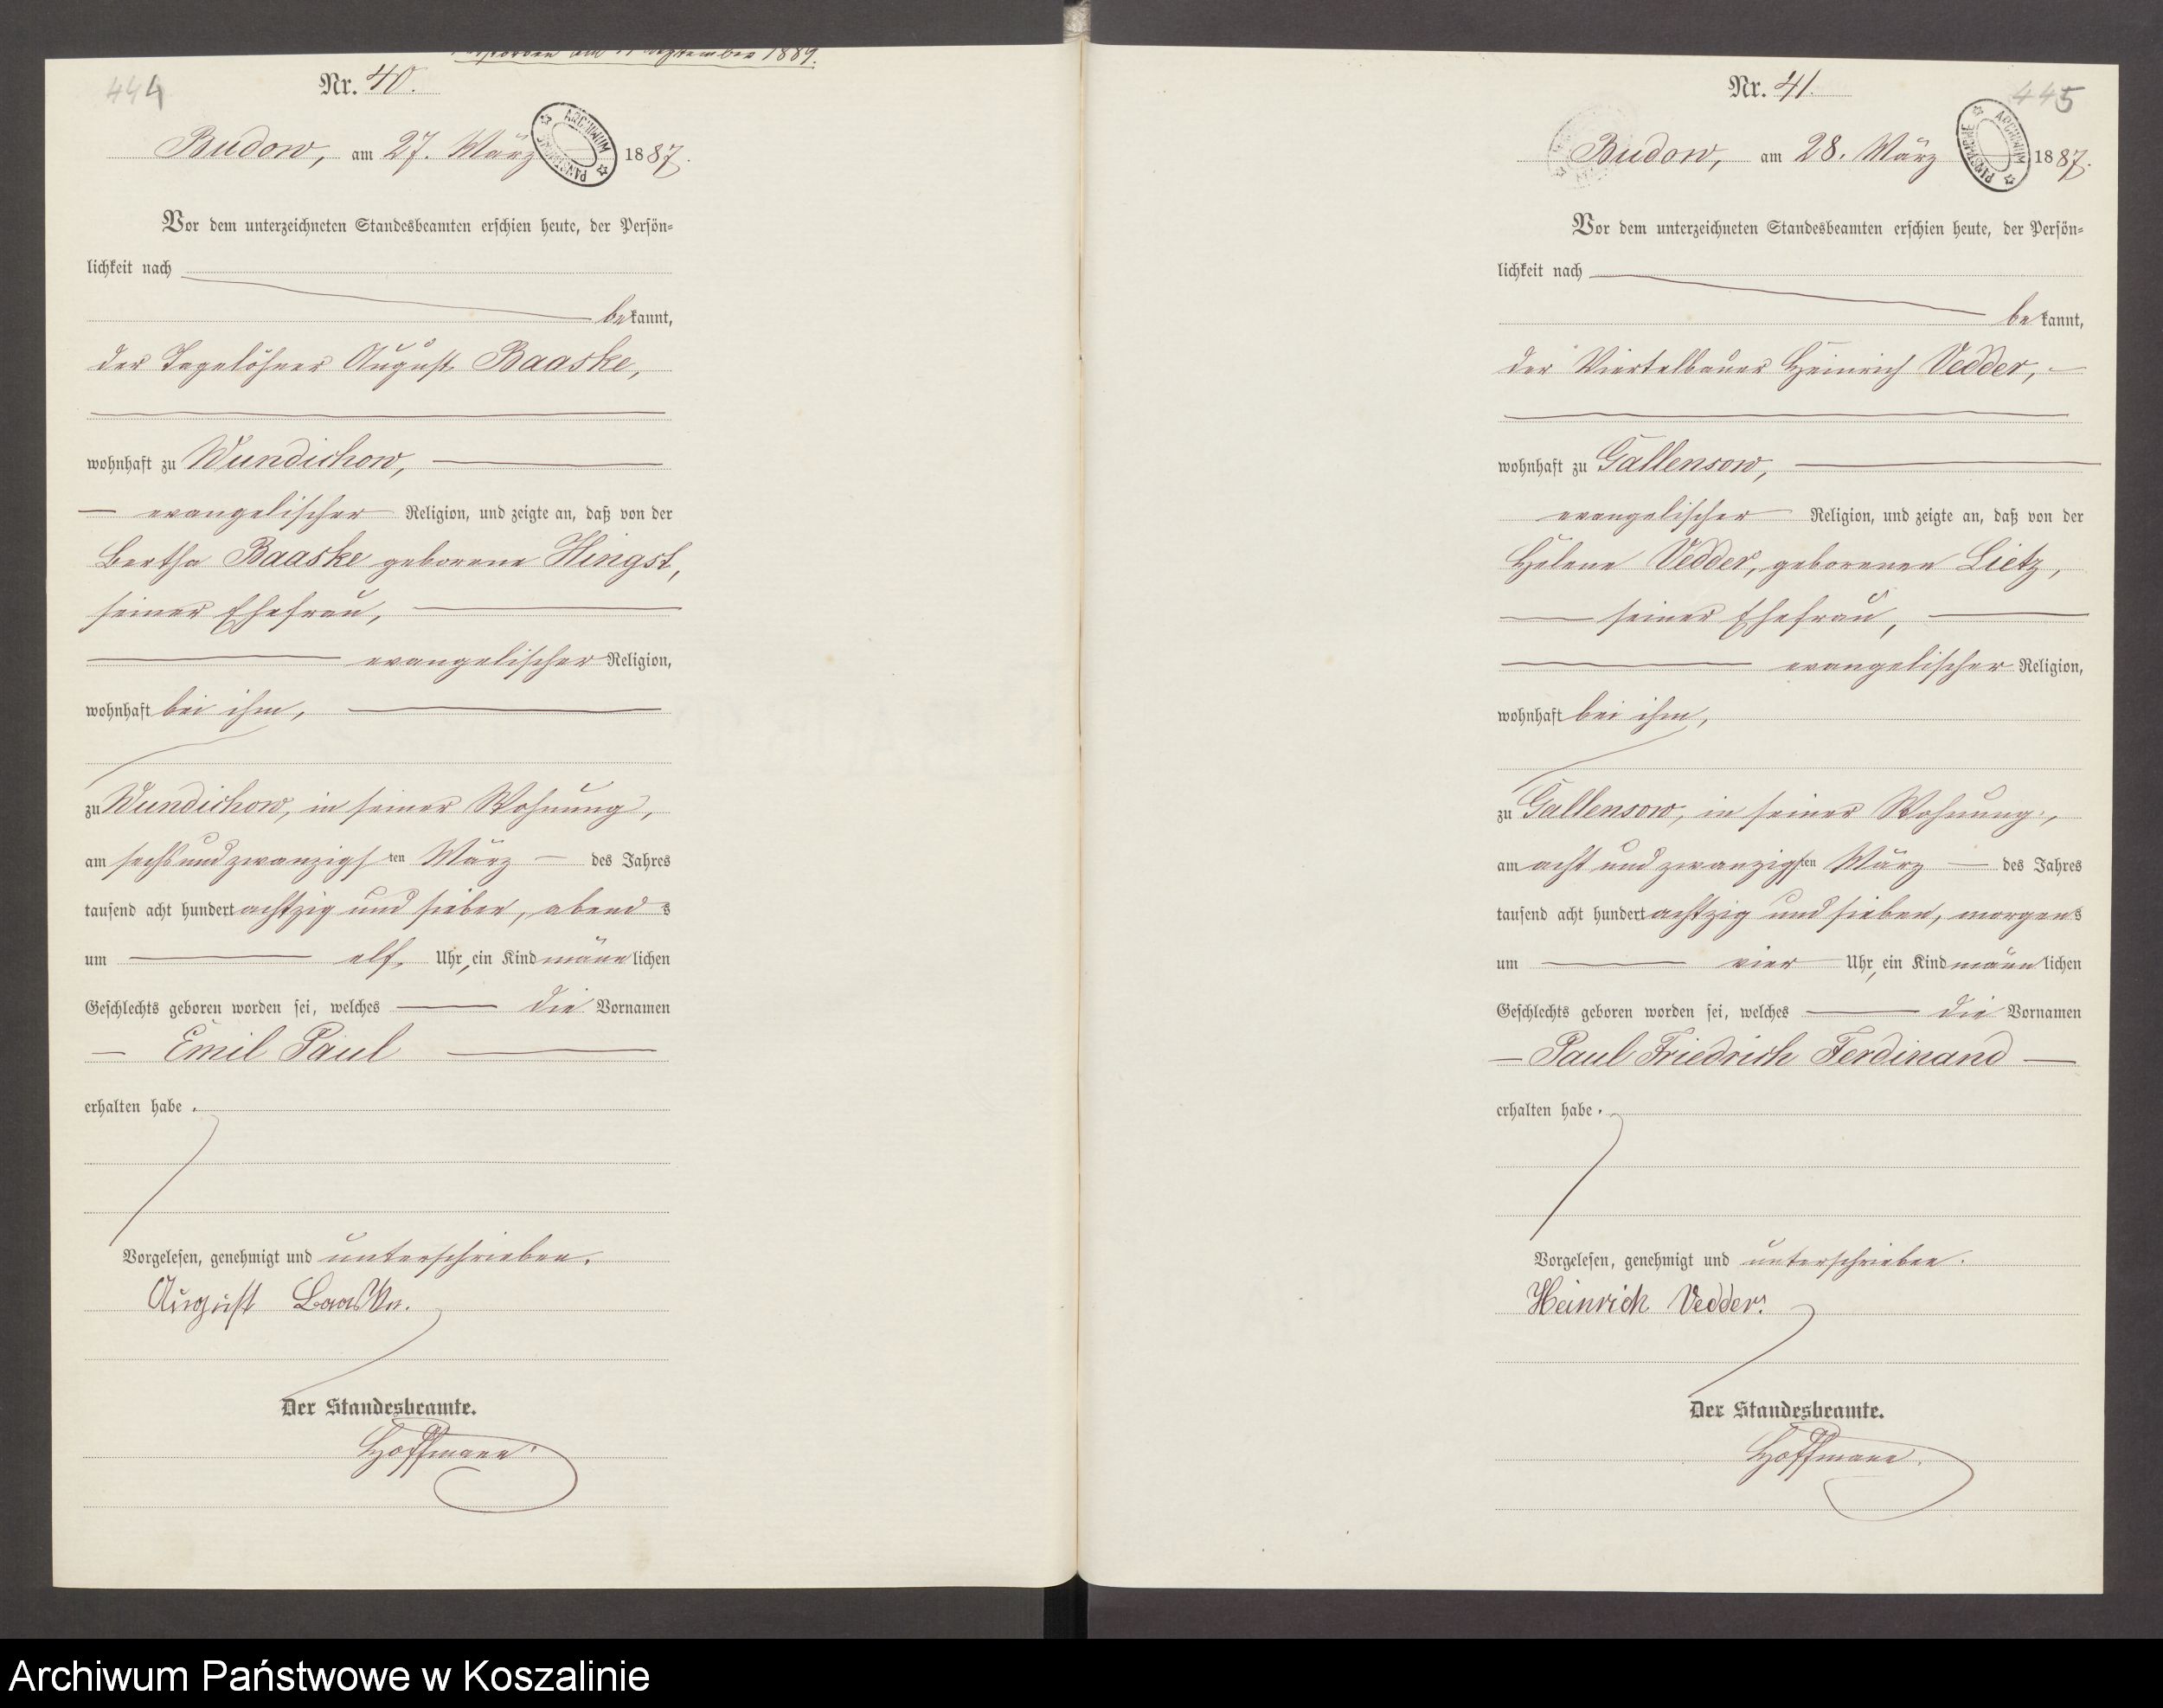 am 11 September 1889.
444
Nr. 40.
Budow, am 27. März 1887.
ARCHIWUM PAŃSTWOWE
Vor dem unterzeichneten Standesbeamten erschien heute, der Persön=
lichkeit nach
bekannt,
der Tagelöhner August Baaske,
wohnhaft zu Wundichow,
evangelischer Religion, und zeigte an, daß von der
Bertha Baaske geborene Hingst,
seiner Ehefrau,
evangelischer Religion,
wohnhaft bei ihm,
zu Wundichow, in seiner Wohnung,
am sechsundzwanzigsten März des Jahres
tausend acht hundert achtzig und sieben, abends
um elf Uhr, ein Kind männlichen
Geschlechts geboren worden sei, welches die Vornamen
Emil Paul
erhalten habe.
Vorgelesen, genehmigt und unterschrieben.
August Baaske.
Der Standesbeamte.
Hoffmann.
Nr. 41.
445
Budow, am 28. März 1887.
ARCHIWUM PAŃSTWOWE
Vor dem unterzeichneten Standesbeamten erschien heute, der Persön=
lichkeit nach
bekannt,
der Viertelbauer Heinrich Vedder,
wohnhaft zu Gallensow,
evangelischer Religion, und zeigte an, daß von der
Helene Vedder, geborenen Lietz,
seiner Ehefrau,
evangelischer Religion,
wohnhaft bei ihm,
zu Gallensow, in seiner Wohnung,
am acht und zwanzigsten März des Jahres
tausend acht hundert achtzig und sieben, morgens
um vier Uhr, ein Kind männlichen
Geschlechts geboren worden sei, welches die Vornamen
Paul Friedrich Ferdinand
erhalten habe.
Vorgelesen, genehmigt und unterschrieben.
Heinrich Vedder.
Der Standesbeamte.
Hoffmann.
Archiwum Państwowe w Koszalinie